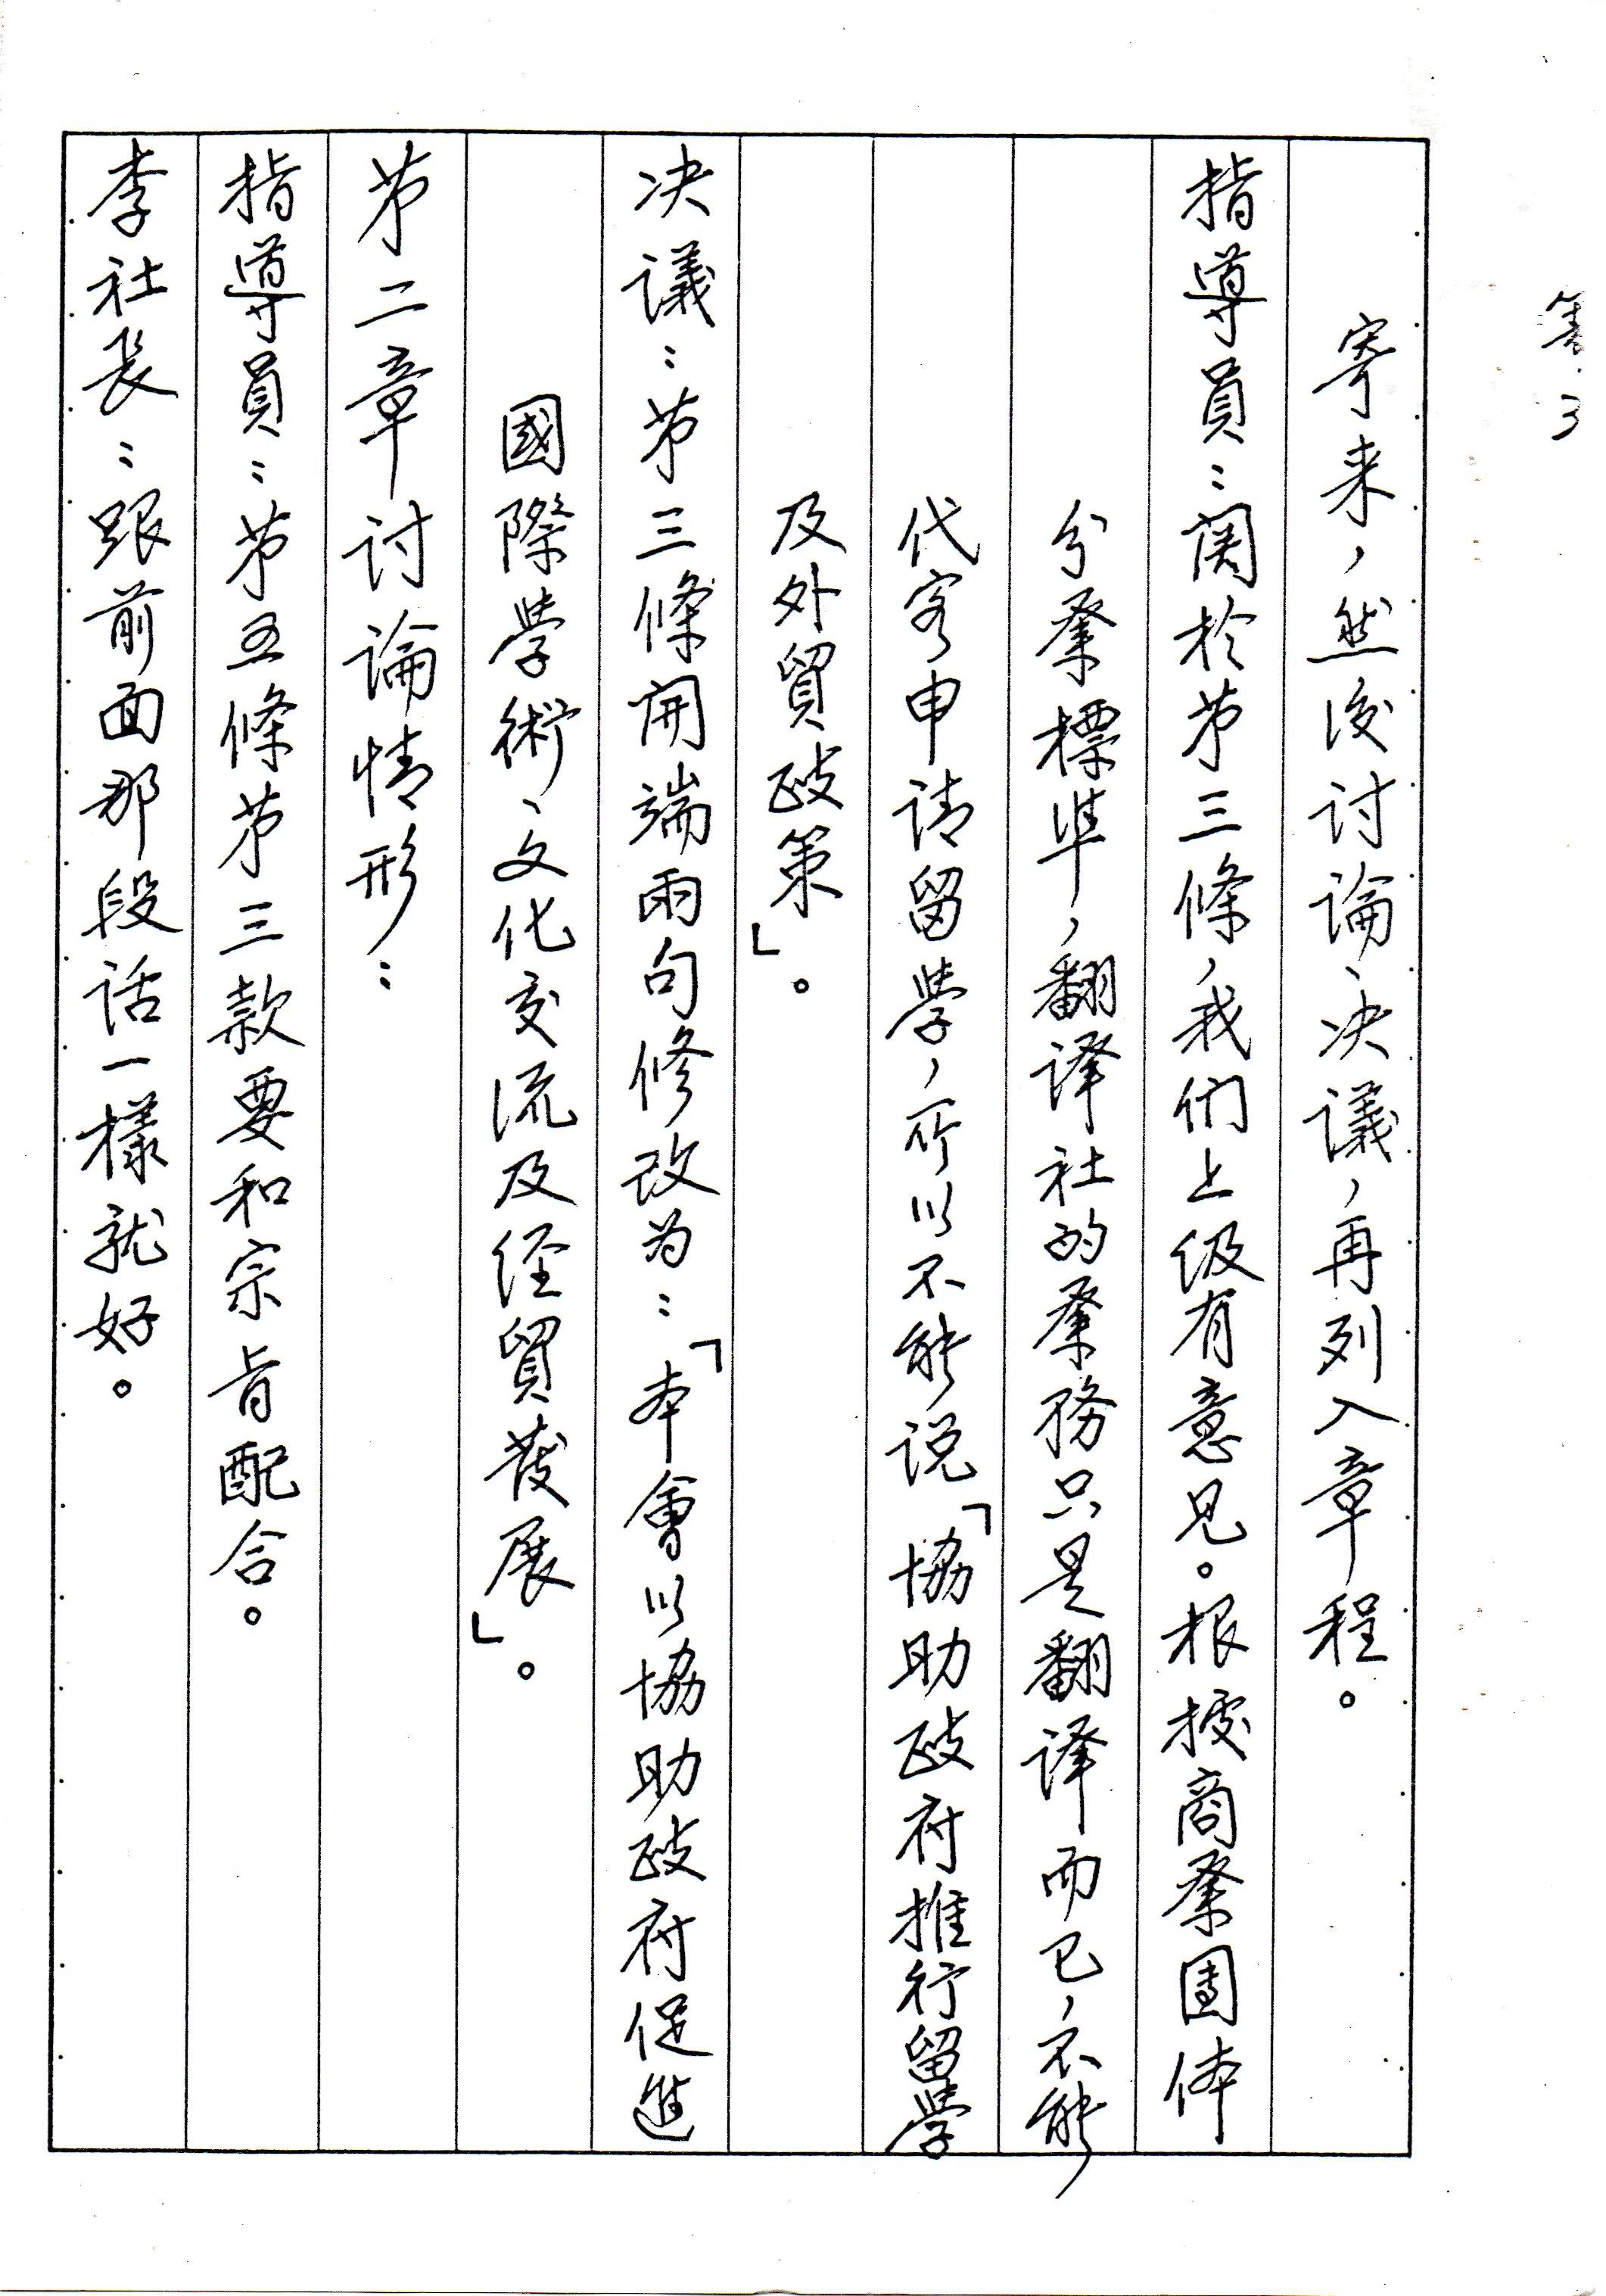 籌.3
寄来，然後讨論、决議，再列入章程。
指導員：関於第三條，我们上级有意見。根據商業团体
分業標準，翻译社的業務只是翻译而已，不能
代客申请留學，所以不能说「協助政府推行留學
及外貿政策」。
决議：第三條開端兩句修改为：「本會以協助政府促進
國際學術、文化交流及经貿發展」。
第二章讨論情形：
指導員：第五條第三款要和宗旨配合。
李社長：跟前面那段话一樣就好。